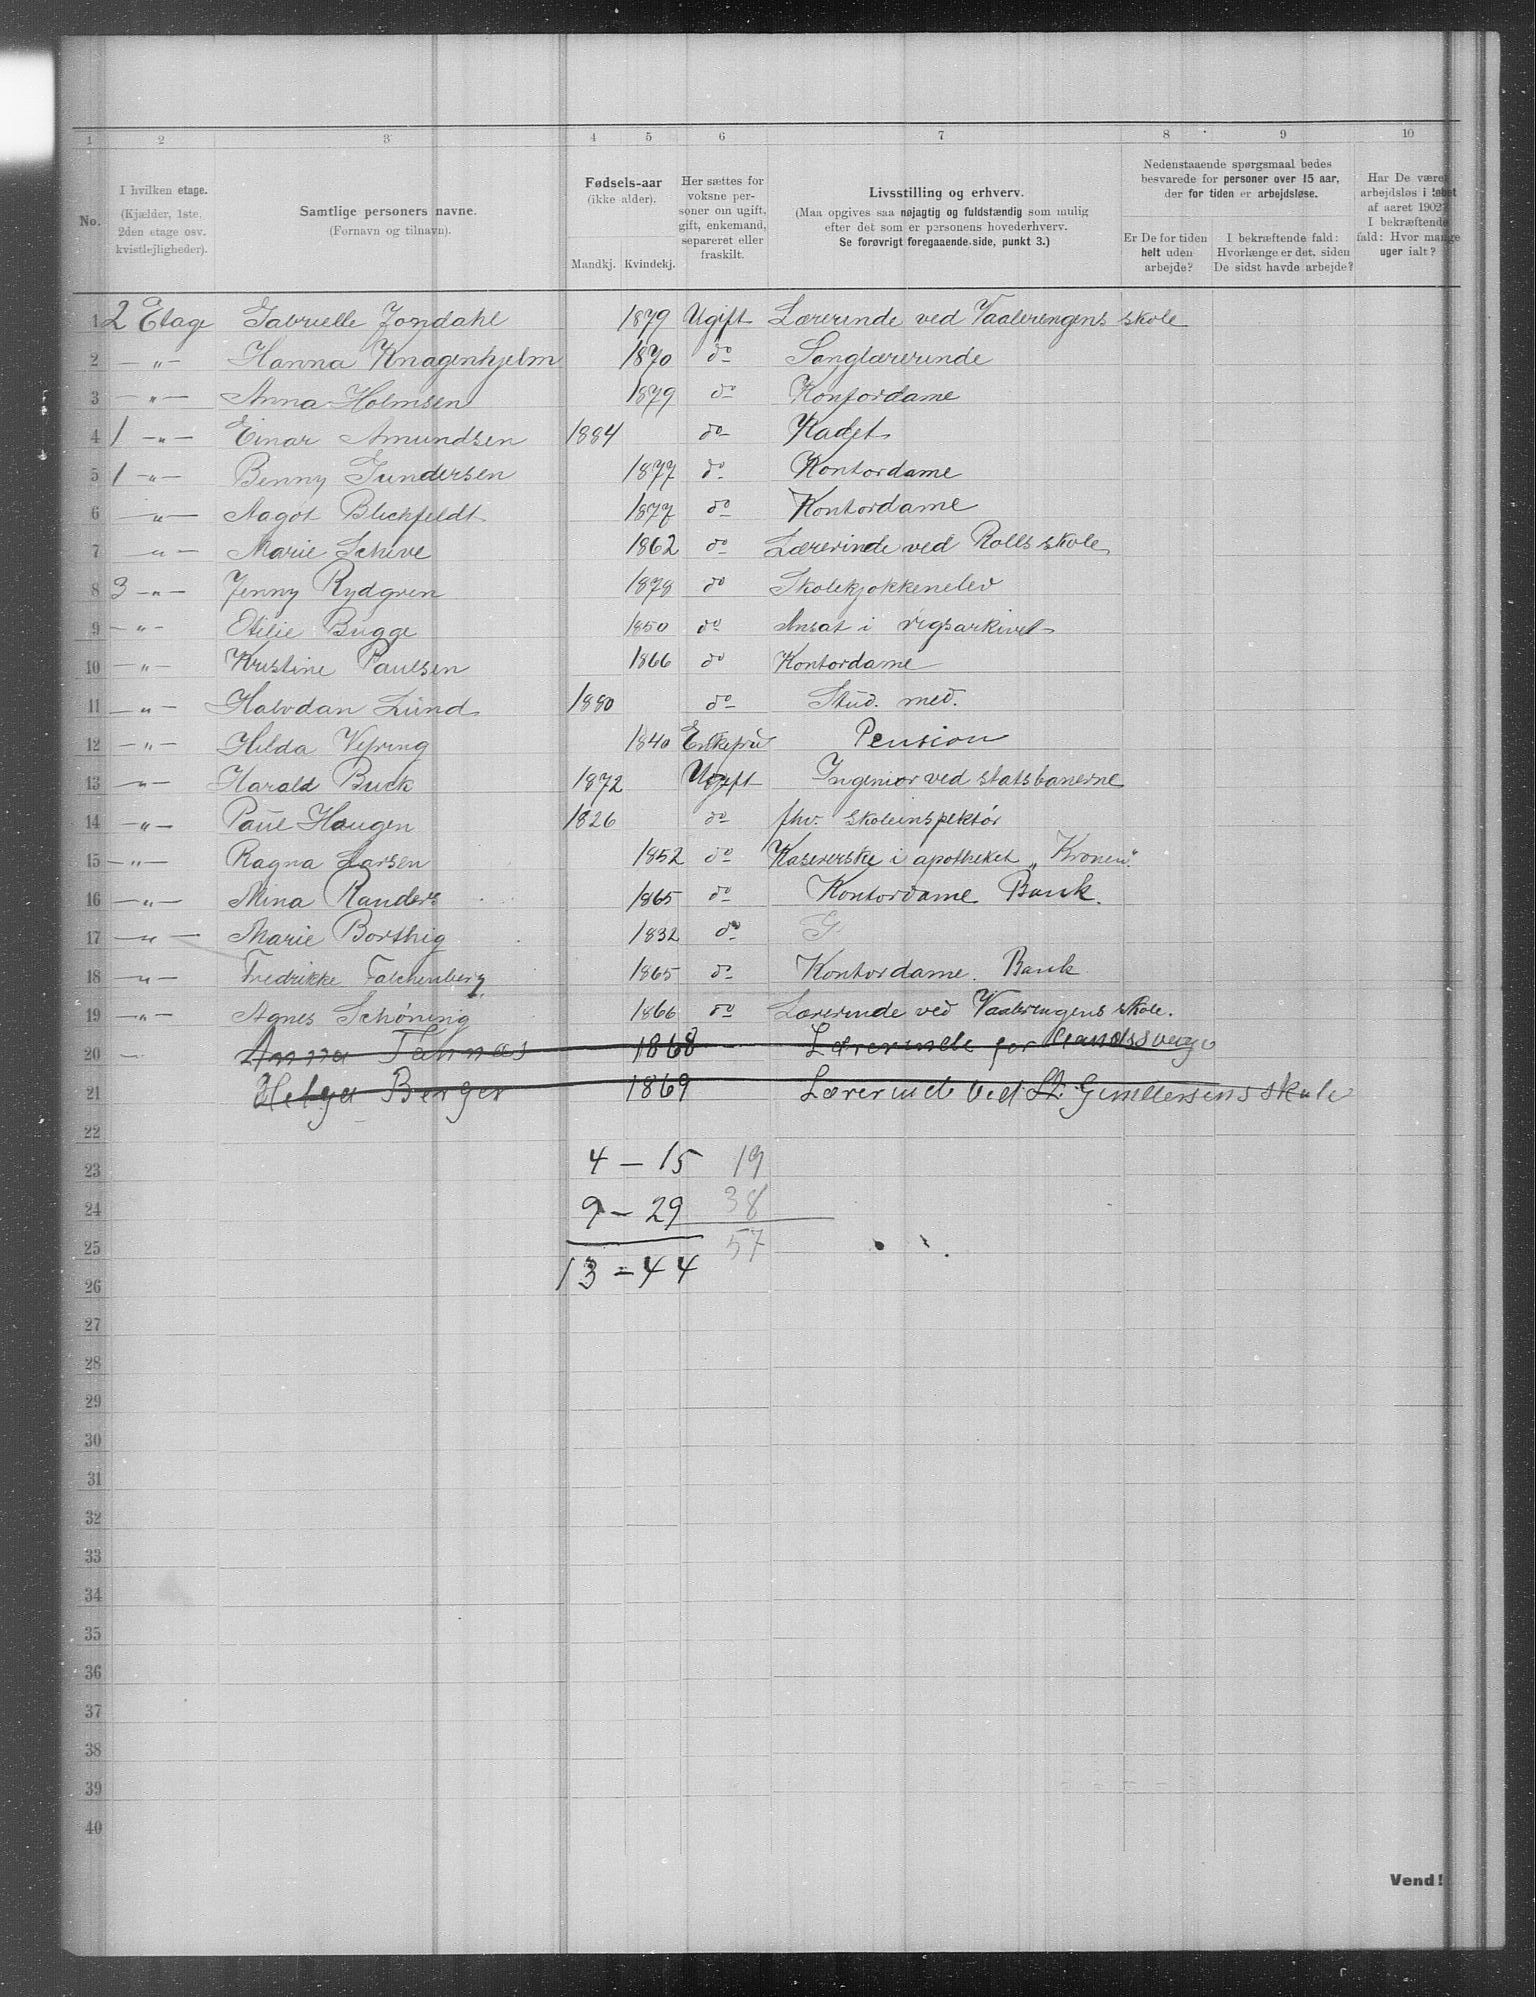 1 2 3 4 5 6 7 8 9 10
No.
I hvilken etage.
(Kjælder, 1ste,
2den etage osv.
kvistlejligheder).
Samtlige personers navne.
(Fornavn og tilnavn).
Fødsels-aar
(ikke alder).
Mandkj. Kvindekj.
Her sættes for
voksne per-
soner om ugift,
gift, enkemand,
separeret eller
fraskilt.
Livsstilling og erhverv.
(Maa opgives saa nøjagtig og fuldstændig som mulig
efter det som er personens hovederhverv.
Se forøvrigt foregaaende side, punkt 3.)
Nedenstaaende spørgsmaal bedes
besvarede for personer over 15 aar,
der for tiden er arbejdsløse.
Er De for tiden
helt uden
arbejde?
I bekræftende fald:
Hvorlænge er det, siden
De sidst havde arbejde?
Har De været
arbejdsløs i løbet
af aaret 1902?
I bekræftende
fald: Hvor mange
uger ialt?
1 2 Etage Gabrielle Jondahl 1879 Ugift Lærerinde ved Vaalerengens skole
2 — " — Hanna Knagenhjelm 1870 do Sanglærerinde
3 — " — Anna Holmsen 1879 do Kontordame
4 1 — " — Einar Amundsen 1884 do Kadet
5 1 — " — Benny Gundersen 1877 do Kontordame
6 — " — Aagot Blichfeldt 1877 do Kontordame
7 — " — Marie Schive 1862 do Lærerinde ved Rolls skole
8 3 — " — Jenny Rydgren 1878 do Skolekjøkkenelev
9 — " — Otilie Bugge 1850 do Ansat i rigsarkivet
10 — " — Kristine Paulsen 1866 do Kontordame
11 — " — Halvdan Lund 1880 do Stud. med.
12 — " — Hilda Vefring 1840 Enkefru Pension
13 — " — Harald Buck 1872 Ugift Ingeniør ved statsbanerne
14 — " — Paul Haugen 1826 do fhv. skoleinspektør
15 — " — Ragna Larsen 1852 do Kasererske i apotheket „Kronen".
16 — " — Mina Randers 1865 do Kontordame Bank.
17 — " — Marie Borthig 1832 do G
18 — " — Fredrikke Falchenberg 1865 do Kontordame. Bank
19 — " — Agnes Schøning 1866 do Lærerinde ved Vaalerengens skole.
20 — " — Anna Tannæs 1868 — Lærerinde for
21 Helga Berger 1869 Lærerinde ved St. Gundersens skole
22
23 4 — 15 19
24 9 — 29 38
25 57
26 13 — 44
27
28
29
30
31
32
33
34
35
36
37
38
39
40
Vend!